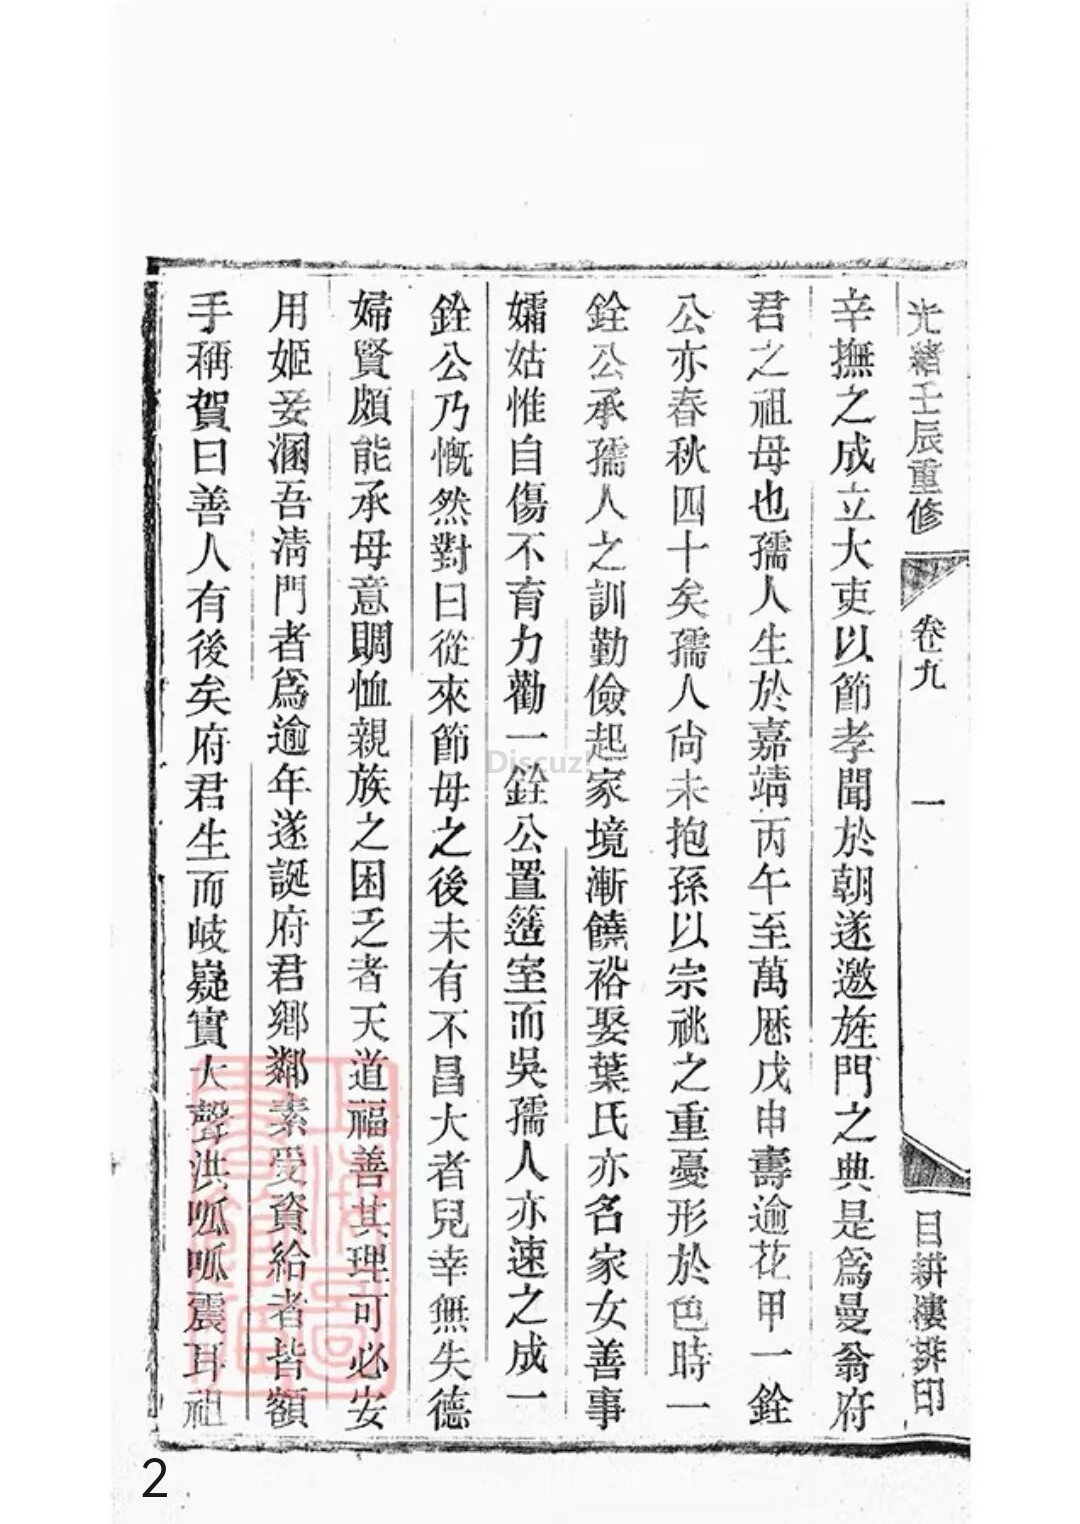 光緒壬辰重修
卷九
一
目耕樓排印
辛撫之成立大吏以節孝聞於朝遂邀旌門之典是爲曼翁府
君之祖母也孺人生於嘉靖丙午至萬厯戊申壽逾花甲一銓
公亦春秋四十矣孺人尙未抱孫以宗祧之重憂形於色時一
銓公承孺人之訓勤儉起家境漸饒裕娶葉氏亦名家女善事
孀姑惟自傷不育力勸一銓公置簉室而吳孺人亦速之成一
銓公乃慨然對曰從來節母之後未有不昌大者兒幸無失德
婦賢頗能承母意賙恤親族之困乏者天道福善其理可必安
用姬妾溷吾淸門者爲逾年遂誕府君鄉鄰素受資給者皆額
手稱賀曰善人有後矣府君生而岐嶷實大聲洪呱呱震耳祖
Discuz!
2